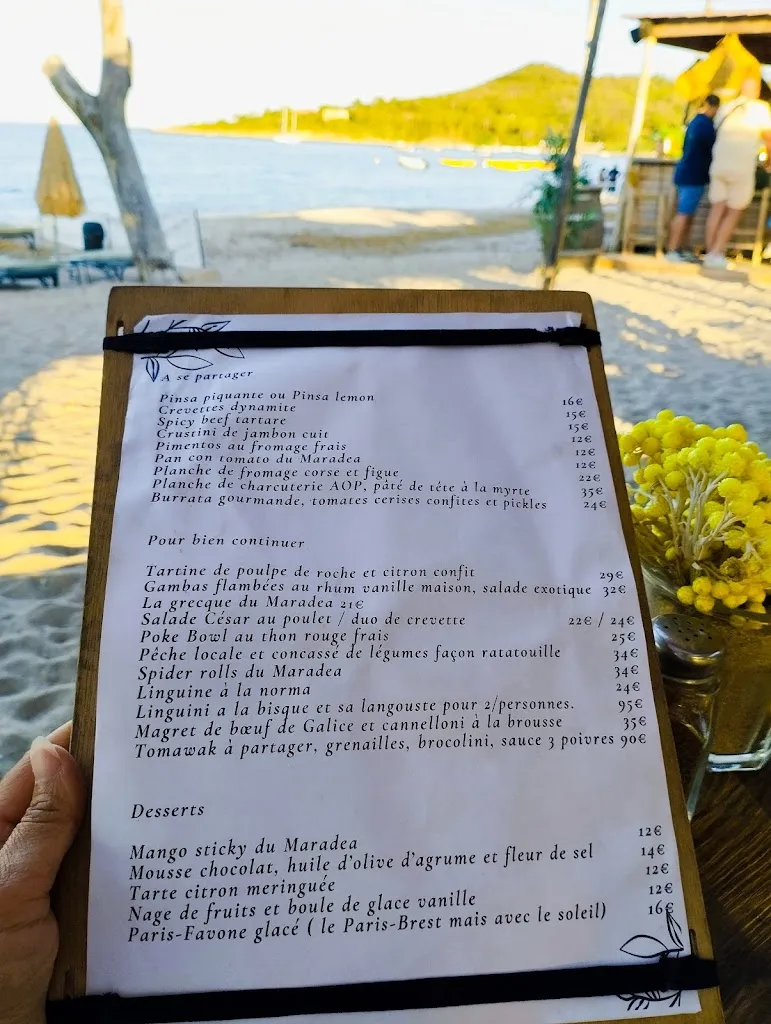 A se partager
Pinsa piquante ou Pinsa lemon 16€
Crevettes dynamite 15€
Spicy beef tartare 15€
Crustini de jambon cuit 12€
Pimentos au fromage frais 12€
Pan con tomato du Maradea 12€
Planche de fromage corse et figue 22€
Planche de charcuterie AOP, pâté de tête à la myrte 35€
Burrata gourmande, tomates cerises confites et pickles 24€
Pour bien continuer
Tartine de poulpe de roche et citron confit 29€
Gambas flambées au rhum vanille maison, salade exotique 32€
La grecque du Maradea 21€
Salade César au poulet / duo de crevette 22€ / 24€
Poke Bowl au thon rouge frais 25€
Pêche locale et concassé de légumes façon ratatouille 34€
Spider rolls du Maradea 34€
Linguine à la norma 24€
Linguini a la bisque et sa langouste pour 2/personnes. 95€
Magret de bœuf de Galice et cannelloni à la brousse 35€
Tomawak à partager, grenailles, brocolini, sauce 3 poivres 90€
Desserts
Mango sticky du Maradea 12€
Mousse chocolat, huile d'olive d'agrume et fleur de sel 14€
Tarte citron meringuée 12€
Nage de fruits et boule de glace vanille 12€
Paris-Favone glacé ( le Paris-Brest mais avec le soleil) 16€